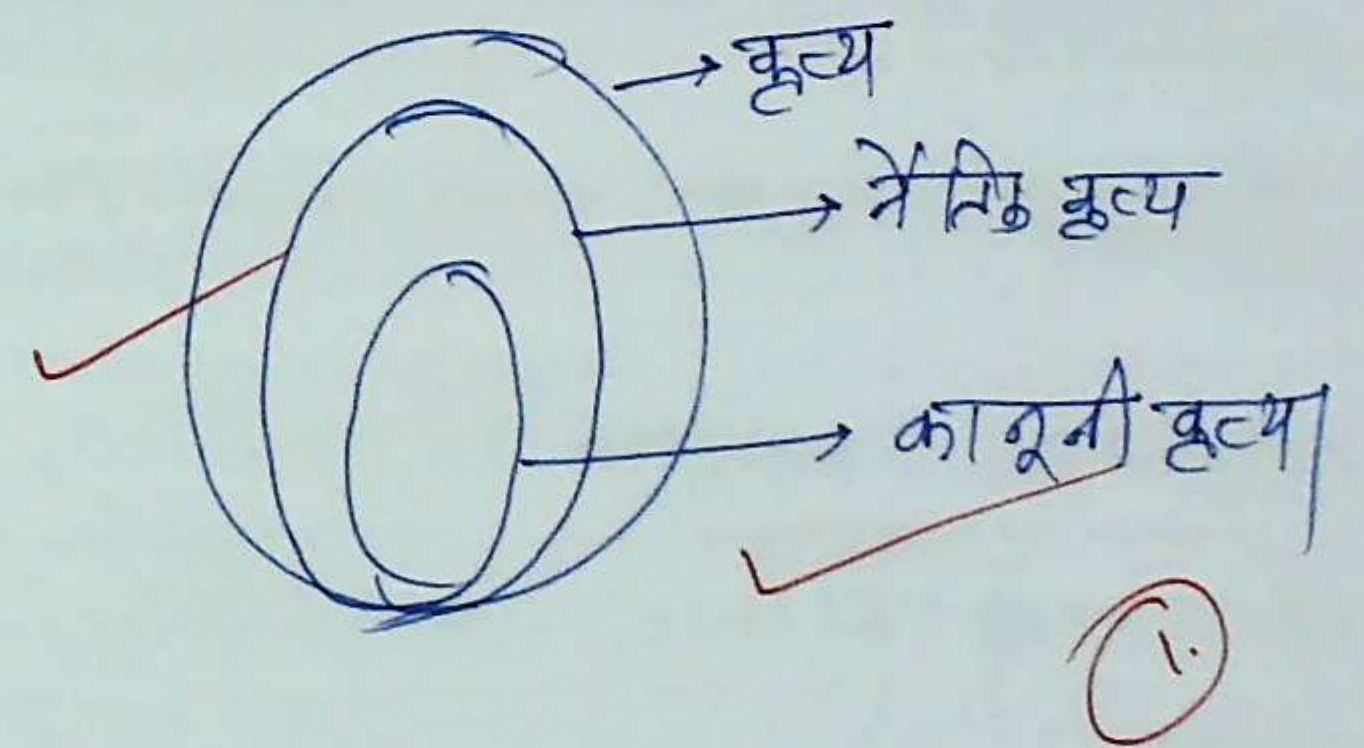 कृत्य
नैतिक कृत्य
कानूनी कृत्य।
1.